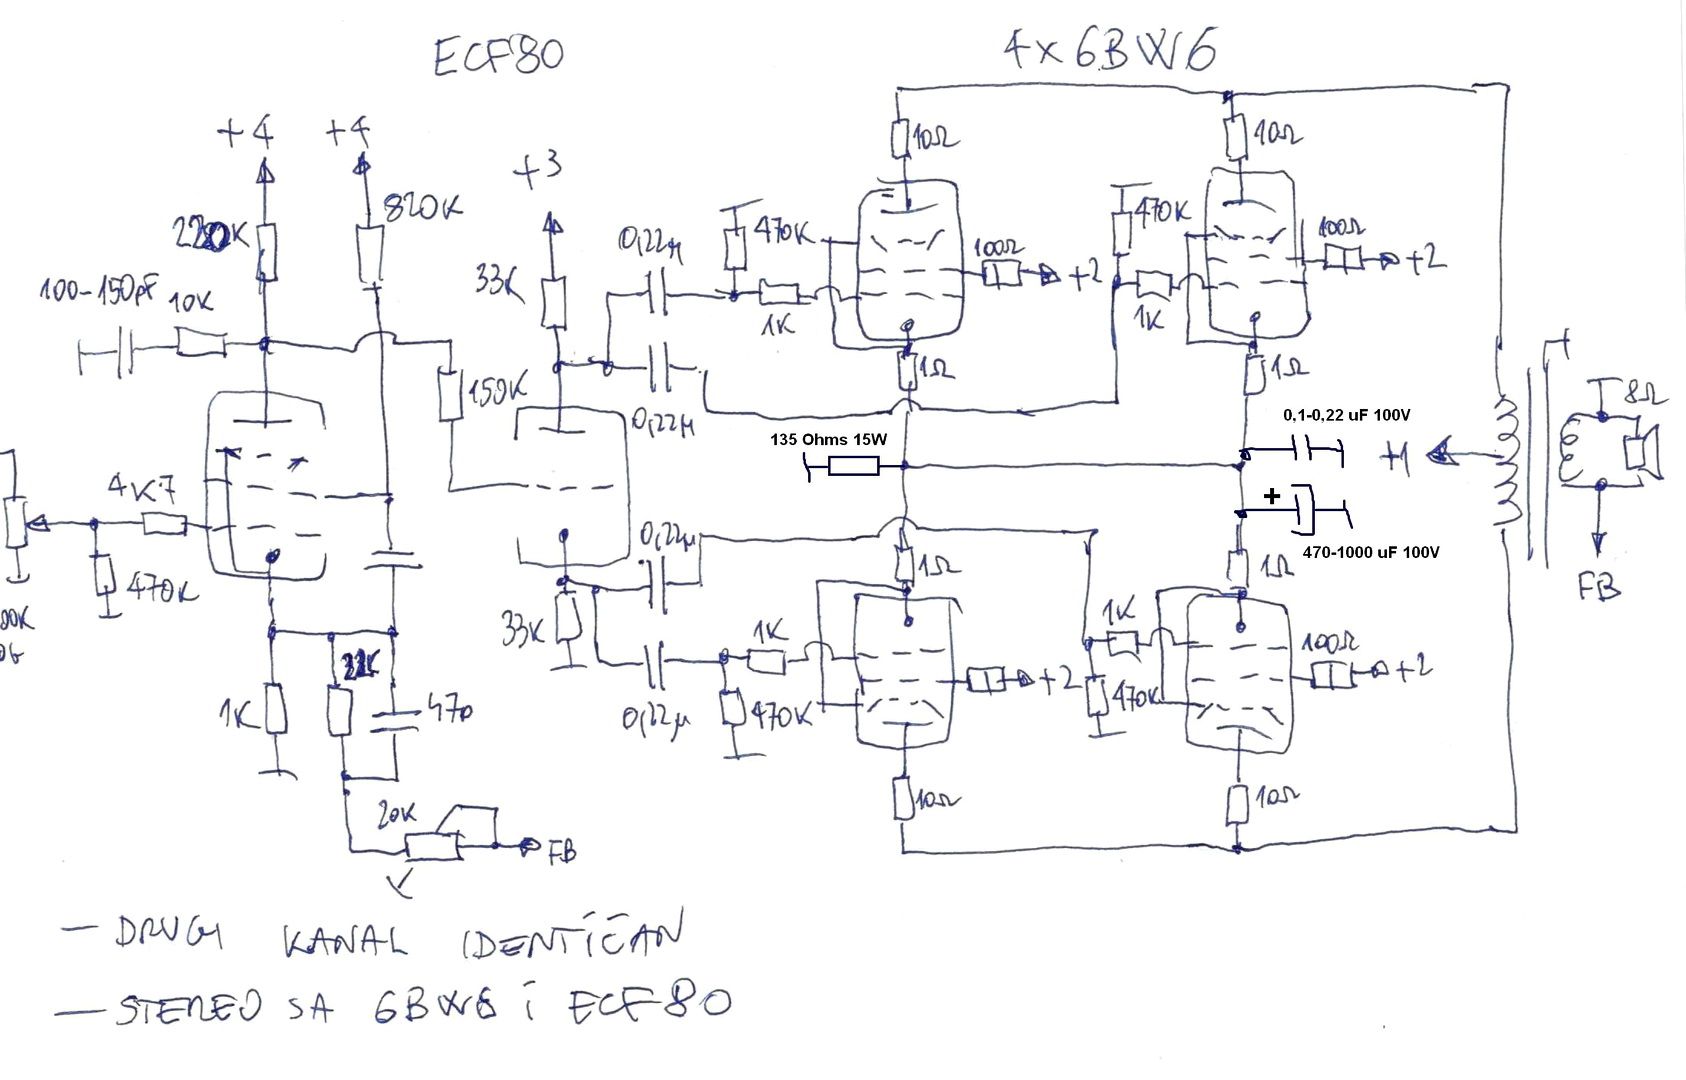 ECF80
4x6BW6
+4
+4
+3
220K
820K
33K
100-150pF
10K
150K
0,22µ
0,22µ
470K
1K
10Ω
100Ω
+2
1Ω
470K
1K
10Ω
100Ω
+2
1Ω
135 Ohms 15W
0,1-0,22 uF 100V
+1
8Ω
FB
+
470-1000 uF 100V
4K7
470K
1K
22K
470
20K
FB
33K
0,22µ
0,22µ
1K
470K
1Ω
+2
10Ω
1K
470K
1Ω
100Ω
+2
10Ω
- DRUGI KANAL IDENTIČAN
- STEREO SA 6BW6 i ECF80